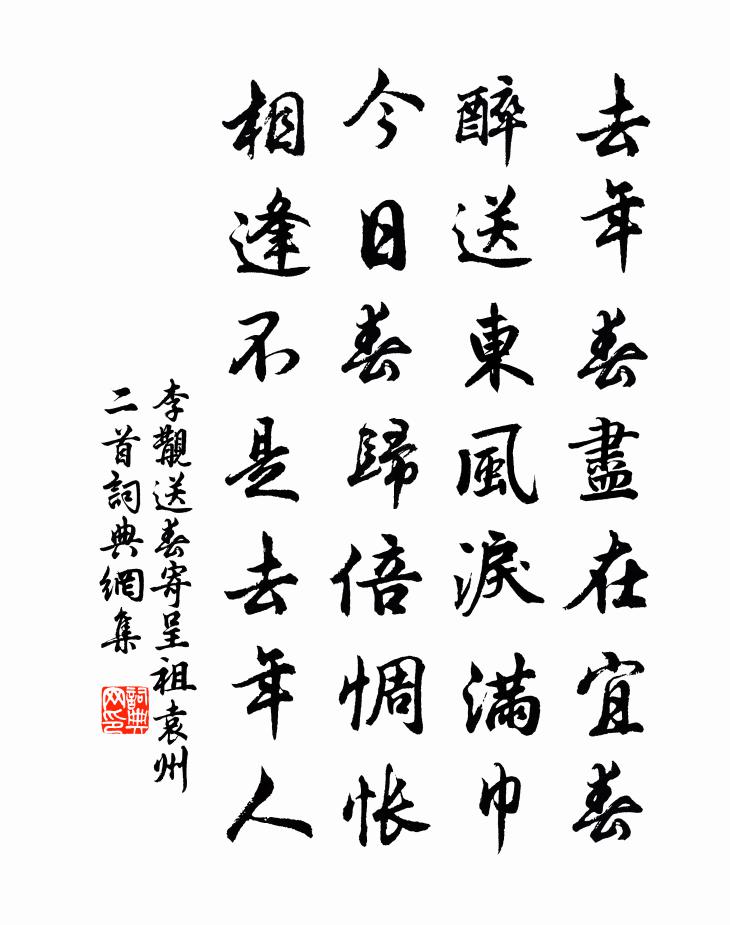 去年春盡在宜春
醉送東風淚滿巾
今日春歸倍惆悵
相逢不是去年人
李覯送春寄呈祖袁州
二首詞典網集
詞典
网印